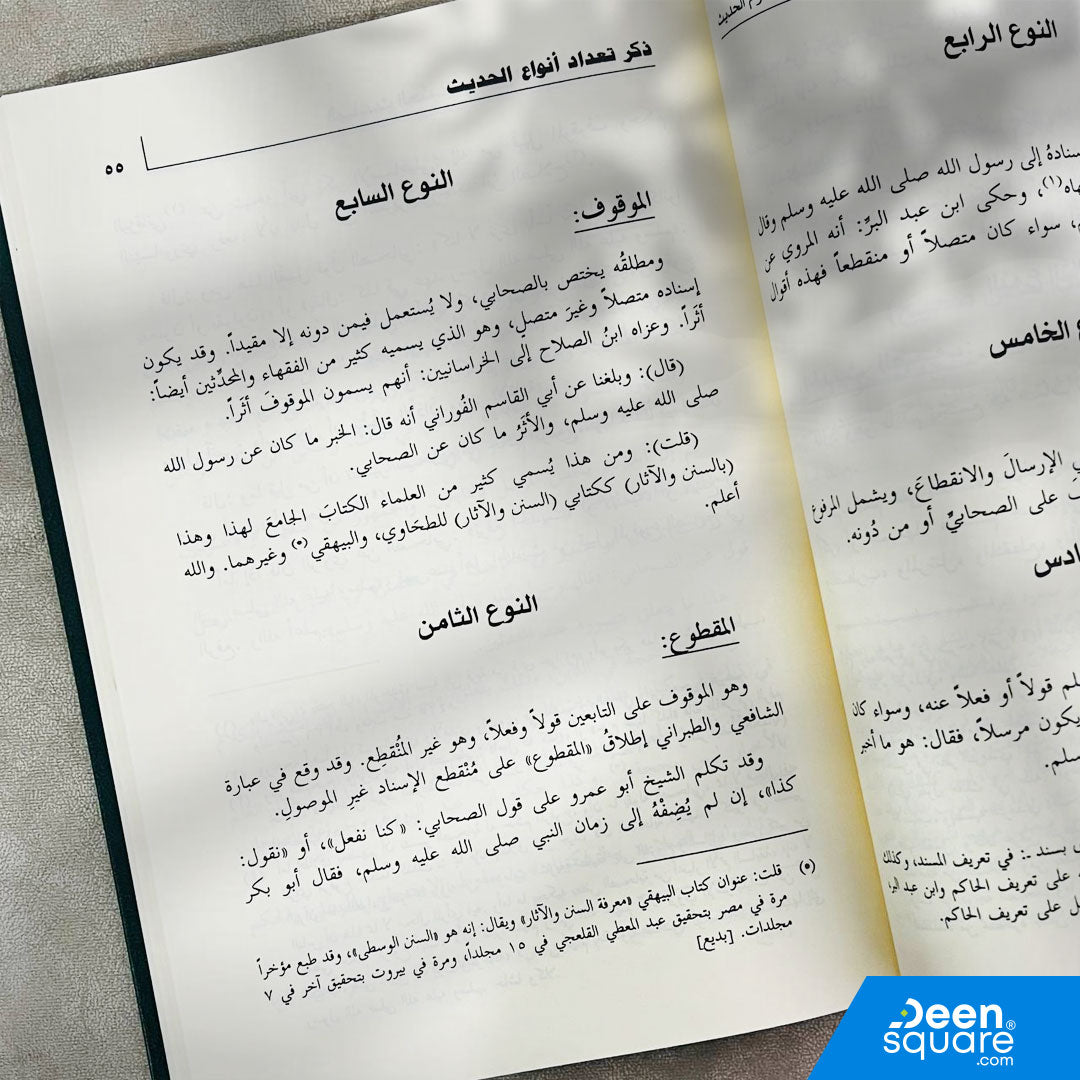 علوم الحديث
النوع الرابع
إسنادهُ إلى رسول الله صلى الله عليه وسلم وقال
، وحكى ابن عبد البرِّ: أنه المروي عن
، سواء كان متصلاً أو منقطعاً فهذه أقوال
الخامس
الإرسالَ والانقطاعَ، ويشمل المرفوع
على الصحابيِّ أو من دُونه.
قولاً أو فعلاً عنه، وسواء كان
يكون مرسلاً، فقال: هو ما أخبر
بسند ـ: في تعريف المسند، وكذلك
على تعريف الحاكم وابن عبد البر،
على تعريف الحاكم.
ذكر تعداد أنواع الحديث
٥٥
النوع السابع
الموقوف:
ومطلقُه يختص بالصحابي، ولا يُستعمل فيمن دونه إلا مقيداً. وقد يكون
إسناده متصلاً وغيرَ متصلٍ، وهو الذي يسميه كثير من الفقهاء والمحدِّثين أيضاً:
أثَراً. وعزاه ابنُ الصلاح إلى الخراسانيين: أنهم يسمون الموقوفَ أثَراً.
(قال): وبلغنا عن أبي القاسم الفُوراني أنه قال: الخبر ما كان عن رسول الله
صلى الله عليه وسلم، والأثَرُ ما كان عن الصحابي.
(قلت): ومن هذا يُسمي كثير من العلماء الكتابَ الجامعَ لهذا وهذا
(بالسنن والآثار) ككتابي (السنن والآثار) للطحَاوي، والبيهقي(*) وغيرهما. والله
أعلم.
النوع الثامن
المقطوع:
وهو الموقوف على التابعين قولاً وفعلاً، وهو غير المُنْقطِع. وقد وقع في عبارة
الشافعي والطبراني إطلاقُ «المقطوع» على مُنْقطع الإسناد غيرِ الموصولِ.
وقد تكلم الشيخ أبو عمرو على قول الصحابي: «كنا نفعل»، أو «نقول:
كذا»، إن لم يُضِفْهُ إلى زمان النبي صلى الله عليه وسلم، فقال أبو بكر
(*) قلت: عنوان كتاب البيهقي «معرفة السنن والآثار» ويقال: إنه هو «السنن الوسطى»، وقد طبع مؤخراً
مرة في مصر بتحقيق عبد المعطي القلعجي في ١٥ مجلداً، ومرة في بيروت بتحقيق آخر في ٧
مجلدات. [بديع]
Deen
square®
.com